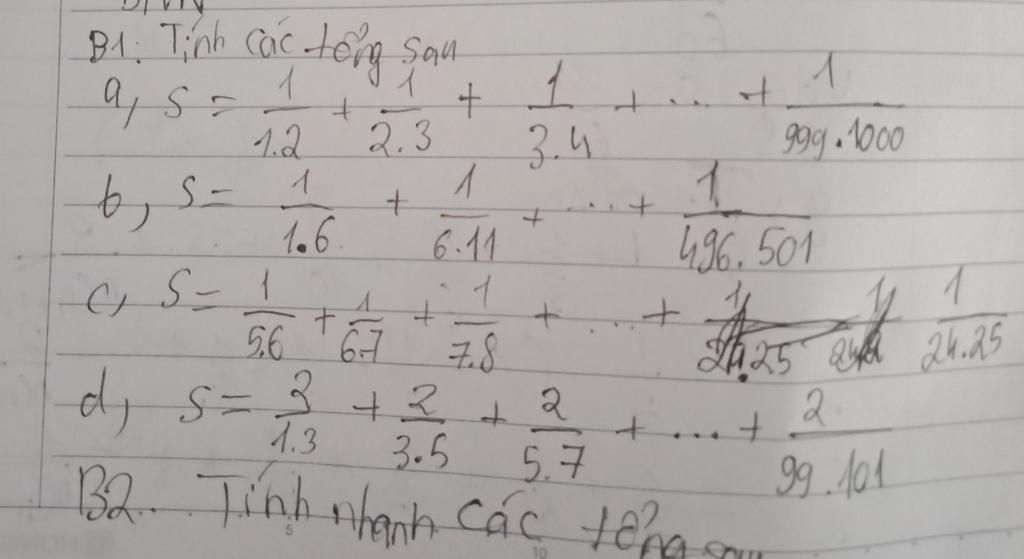 B1. Tính các tổng sau
a, S = 1/1.2 + 1/2.3 + 1/3.4 + ... + 1/999.1000
b, S = 1/1.6 + 1/6.11 + ... + 1/496.501
c, S = 1/5.6 + 1/6.7 + 1/7.8 + ... + 1/24.25
d, S = 2/1.3 + 2/3.5 + 2/5.7 + ... + 2/99.101
B2.. Tính nhanh các tổng sau